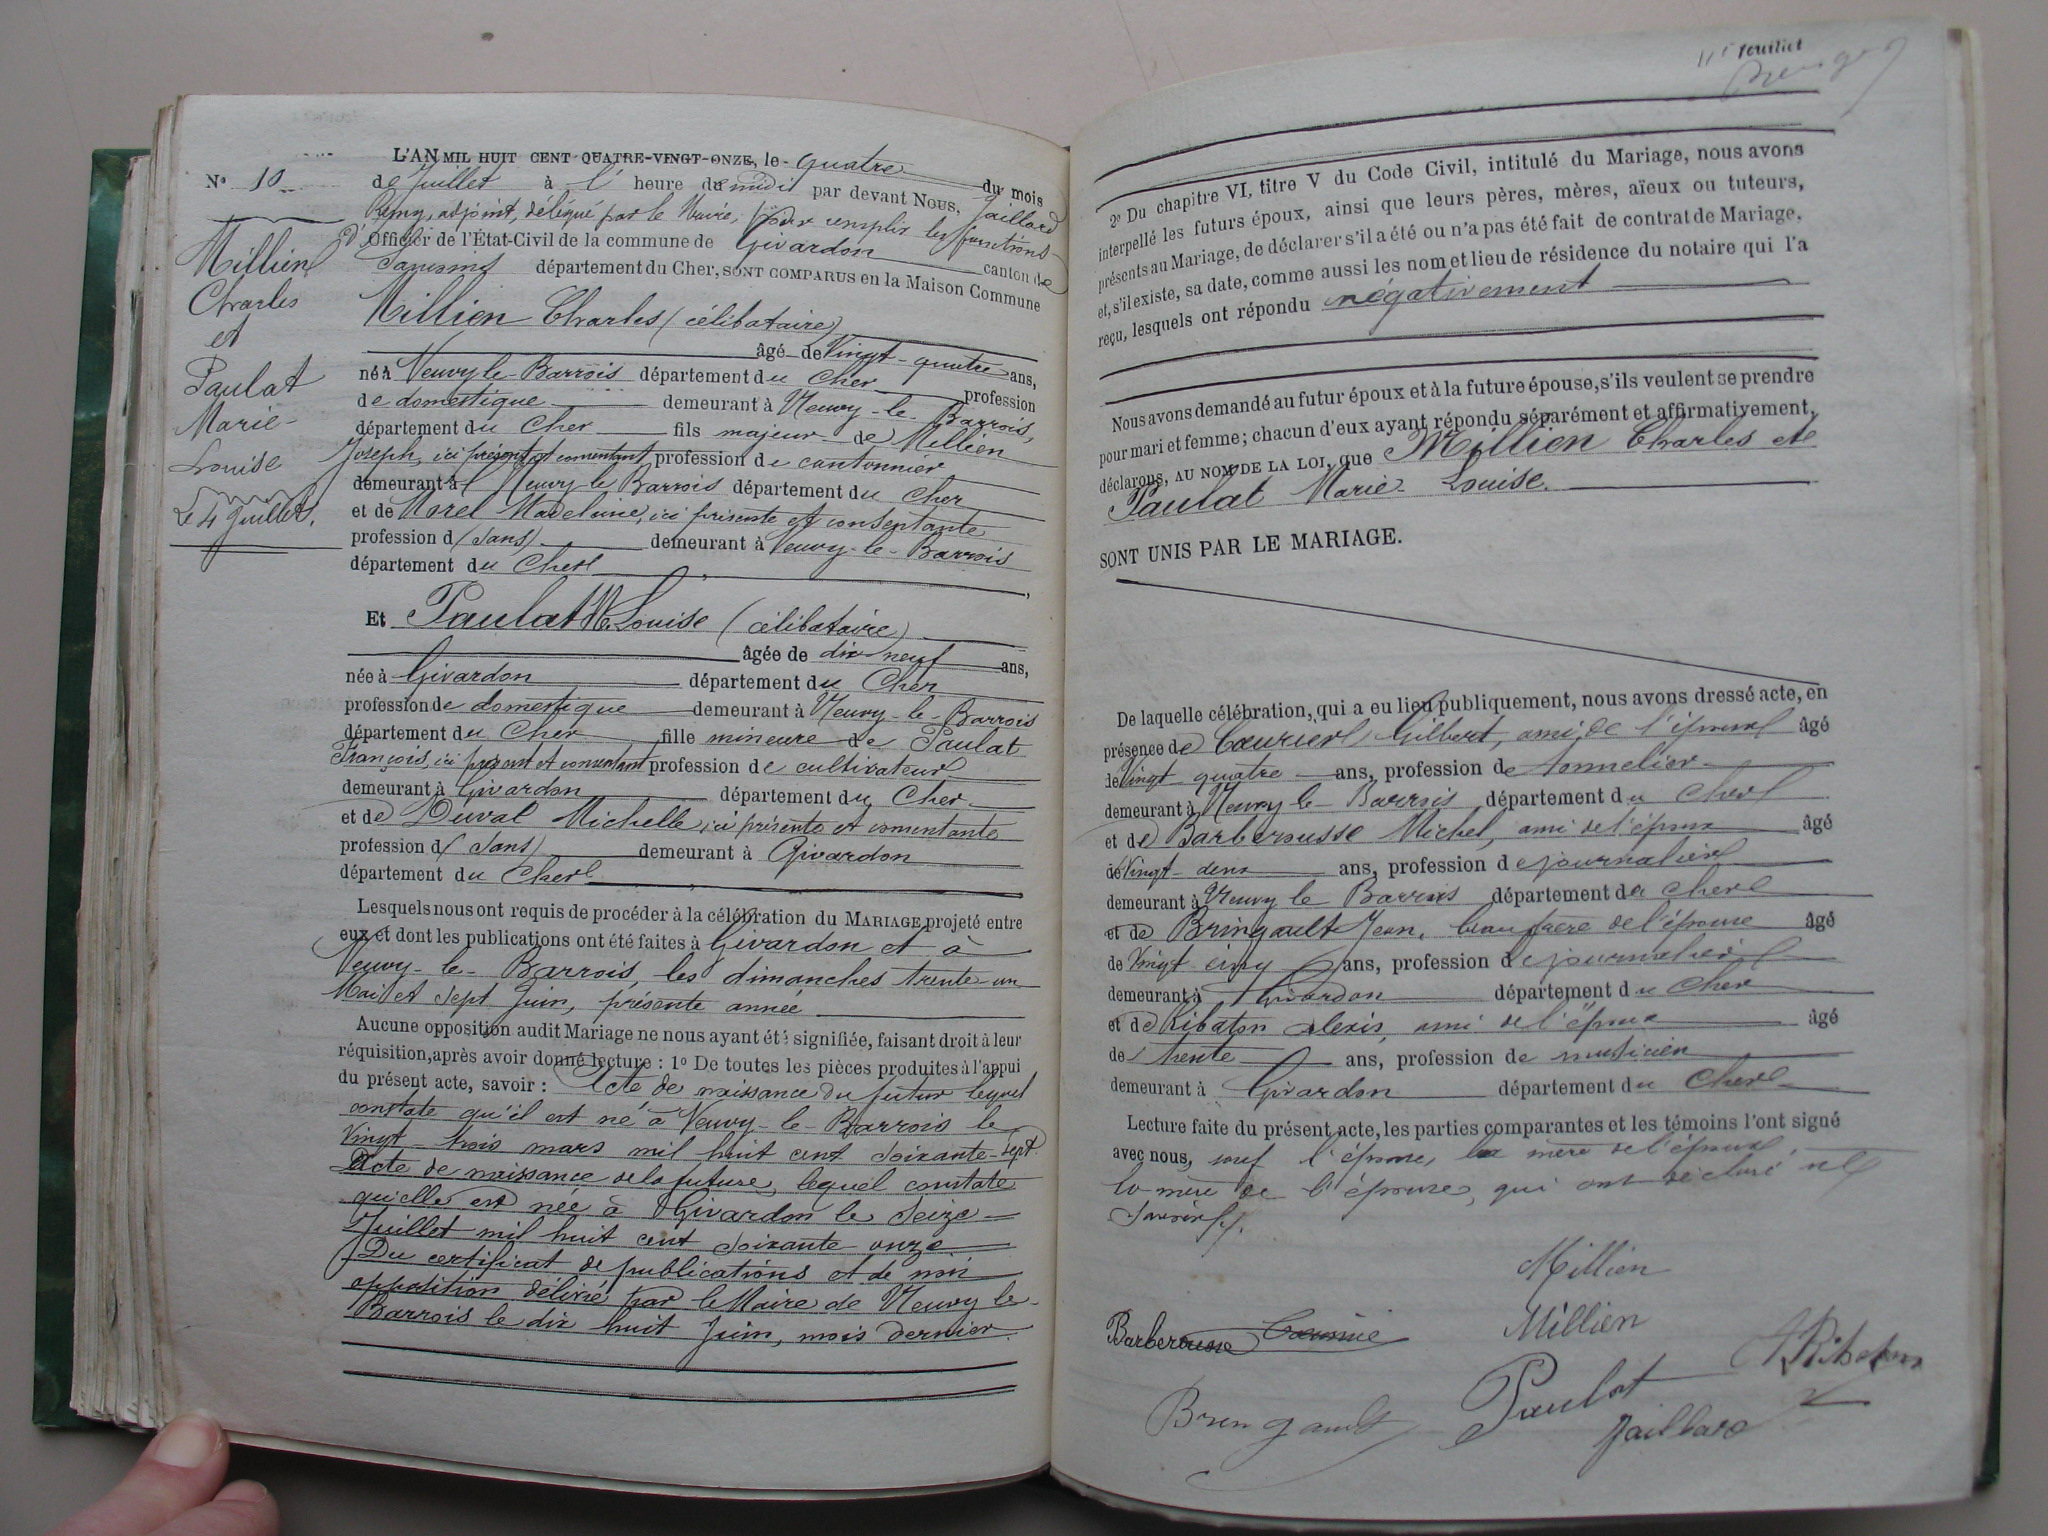 N° 10
Millien
Charles
et
Paulat
Marie-
Louise
Le 4 Juillet.
L'AN MIL HUIT CENT QUATRE-VINGT-ONZE, le quatre du mois
de Juillet à l' heure de midi par devant Nous, Jaillard
Remy, adjoint, délégué par le Maire, pour remplir les fonctions
d' Officier de l'État-Civil de la commune de Givardon canton de
Sancoins département du Cher, SONT COMPARUS en la Maison Commune
Millien Charles (célibataire)
âgé de Vingt-quatre ans,
né à Neuvy-le-Barrois département du Cher profession
de domestique demeurant à Neuvy-le-Barrois,
département du Cher fils majeur de Millien
Joseph, ici présent et consentant, profession de cantonnier
demeurant à Neuvy le Barrois département du Cher
et de Morel Madeleine, ici présente et consentante
profession d (sans) demeurant à Neuvy-le-Barrois
département du Cher
Et Paulat M. Louise (célibataire)
âgée de dix neuf ans,
née à Givardon département du Cher
profession de domestique demeurant à Neuvy-le-Barrois
département du Cher fille mineure de Paulat
François, ici présent et consentant profession de cultivateur
demeurant à Givardon département du Cher
et de Duval Michelle, ici présente et consentante
profession d (sans) demeurant à Givardon
département du Cher
Lesquels nous ont requis de procéder à la célébration du MARIAGE projeté entre
eux et dont les publications ont été faites à Givardon et à
Neuvy-le-Barrois, les dimanches trente-un
Mai et sept Juin, présente année
Aucune opposition audit Mariage ne nous ayant été signifiée, faisant droit à leur
réquisition, après avoir donné lecture : 1° De toutes les pièces produites à l'appui
du présent acte, savoir : Acte de naissance du futur lequel
constate qu'il est né à Neuvy-le-Barrois le
Vingt-trois mars mil huit cent soixante-sept
Acte de naissance de la future, lequel constate
qu'elle est née à Givardon le Seize
Juillet mil huit cent soixante onze
Du certificat de publications et de non
opposition délivré par le Maire de Neuvy le-
Barrois le dix huit Juin, mois dernier.
11e feuillet
2° Du chapitre VI, titre V du Code Civil, intitulé du Mariage, nous avons
interpellé les futurs époux, ainsi que leurs pères, mères, aïeux ou tuteurs,
présents au Mariage, de déclarer s'il a été ou n'a pas été fait de contrat de Mariage,
et, s'il existe, sa date, comme aussi les nom et lieu de résidence du notaire qui l'a
reçu, lesquels ont répondu négativement
Nous avons demandé au futur époux et à la future épouse, s'ils veulent se prendre
pour mari et femme; chacun d'eux ayant répondu séparément et affirmativement,
déclarons, AU NOM DE LA LOI, que Millien Charles et
Paulat Marie-Louise.
SONT UNIS PAR LE MARIAGE.
De laquelle célébration, qui a eu lieu publiquement, nous avons dressé acte, en
présence de Gilbert, ami de l'époux âgé
de Vingt quatre ans, profession de tonnelier
demeurant à Neuvy-le-Barrois département du Cher
et de Barberousse Michel, ami de l'époux âgé
de Vingt-deux ans, profession de journalier
demeurant à Neuvy le Barrois département du Cher
et de Bringault Jean, beau frère de l'épouse âgé
de Vingt cinq ans, profession de journalier
demeurant à Givardon département du Cher
et de Ribaton Alexis, ami de l'époux âgé
de trente ans, profession de musicien
demeurant à Givardon département du Cher
Lecture faite du présent acte, les parties comparantes et les témoins l'ont signé
avec nous, sauf l'épouse, la mère de l'époux
la mère de l'épouse, qui ont déclaré ne
savoir
Millien
Barberousse Millien
ARibaton
Bringault Paulat
Jaillard